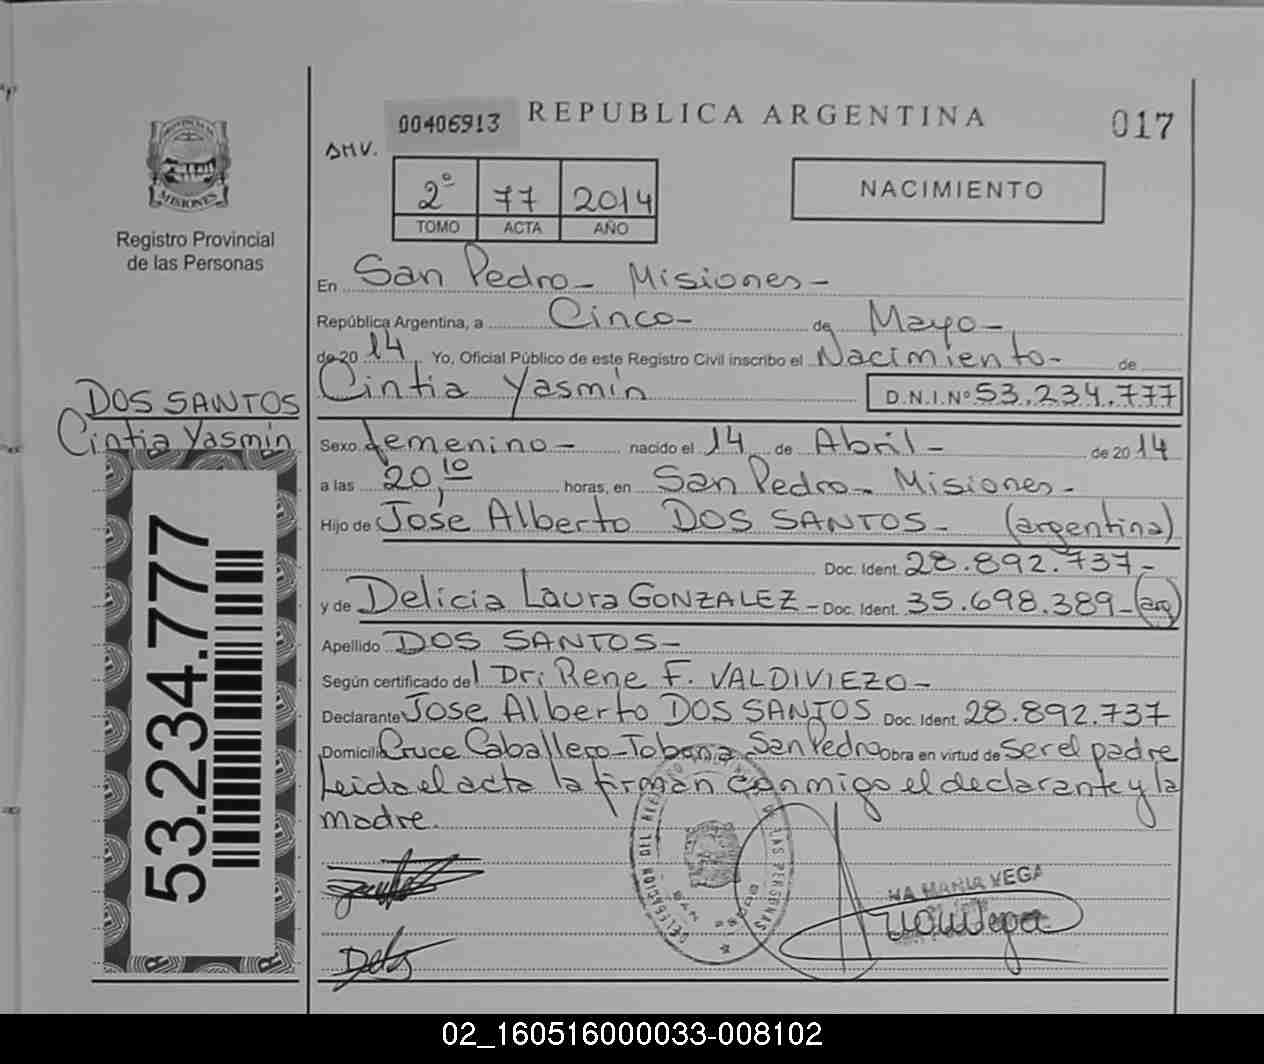 REPUBLICA ARGENTINA
00406913
017
2º 77 2014
TOMO ACTA AÑO
NACIMIENTO
PROVINCIA DE
MISIONES
Registro Provincial
de las Personas
En San Pedro - Misiones -
República Argentina, a Cinco - de Mayo -
de 20 14 Yo, Oficial Público de este Registro Civil inscribo el Nacimiento - de
Cintia Yasmín D.N.I.Nº 53.234.777
DOS SANTOS
Cintia Yasmín
Sexo femenino - nacido el 14 de Abril - de 20 14
a las 20,10 horas, en San Pedro - Misiones -
Hijo de Jose Alberto DOS SANTOS - (argentina)
Doc. Ident. 28.892.737 -
y de Delicia Laura GONZALEZ - Doc. Ident. 35.698.389 - (arg)
Apellido DOS SANTOS -
Según certificado del Dr: Rene F. VALDIVIEZO -
Declarante Jose Alberto DOS SANTOS Doc. Ident. 28.892.737
Domicilio Cruce Caballero - Tobuna San Pedro Obra en virtud de ser el padre
Leida el acta la firman conmigo el declarante y la
madre.
53.234.777
DELEGACION DEL REGISTRO DE LAS PERSONAS
SAN PEDRO
MARIA VEGA
02_160516000033-008102